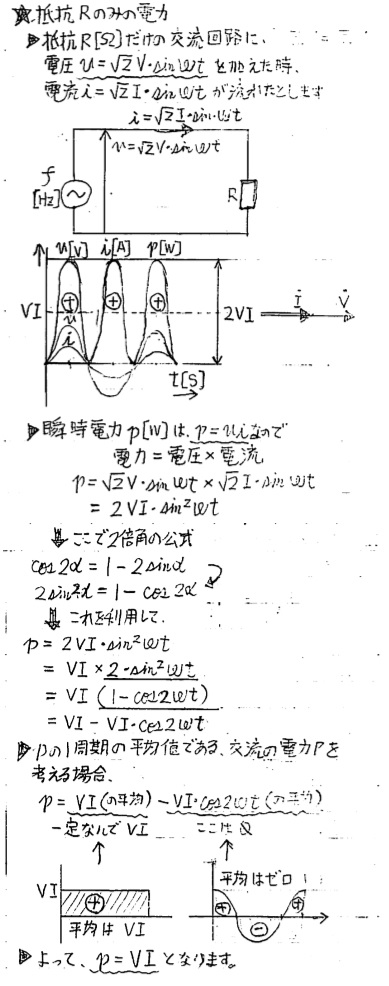 ☆抵抗Rのみの電力
▶抵抗R[Ω]だけの交流回路に、
電圧 v=√2V・sinωtを加えた時、
電流i=√2I・sinωtが流れたとします
i=√2I・sinωt
v=√2V・sinωt
f
[Hz]
R
v[V] i[A] p[W]
VI
+ + +
v
i
2VI
İ V̇
t[S]
▶瞬時電力p[W]は、p=viなので
電力=電圧×電流
p=√2V・sinωt×√2I・sinωt
=2VI・sin²ωt
⇓ここで2倍角の公式
cos2α=1-2sinα
2sin²α=1-cos2α
⇓これを利用して、
p=2VI・sin²ωt
=VI×2・sin²ωt
=VI(1-cos2ωt)
=VI-VI・cos2ωt
▶pの1周期の平均値である、交流の電力Pを
考える場合、
p=VI(の平均)-VI・cos2ωt(の平均)
一定なんで VI ここは0
↑ ↑
VI
+
平均は VI
平均はゼロ!
+ - +
▶よって、p=VIとなります。